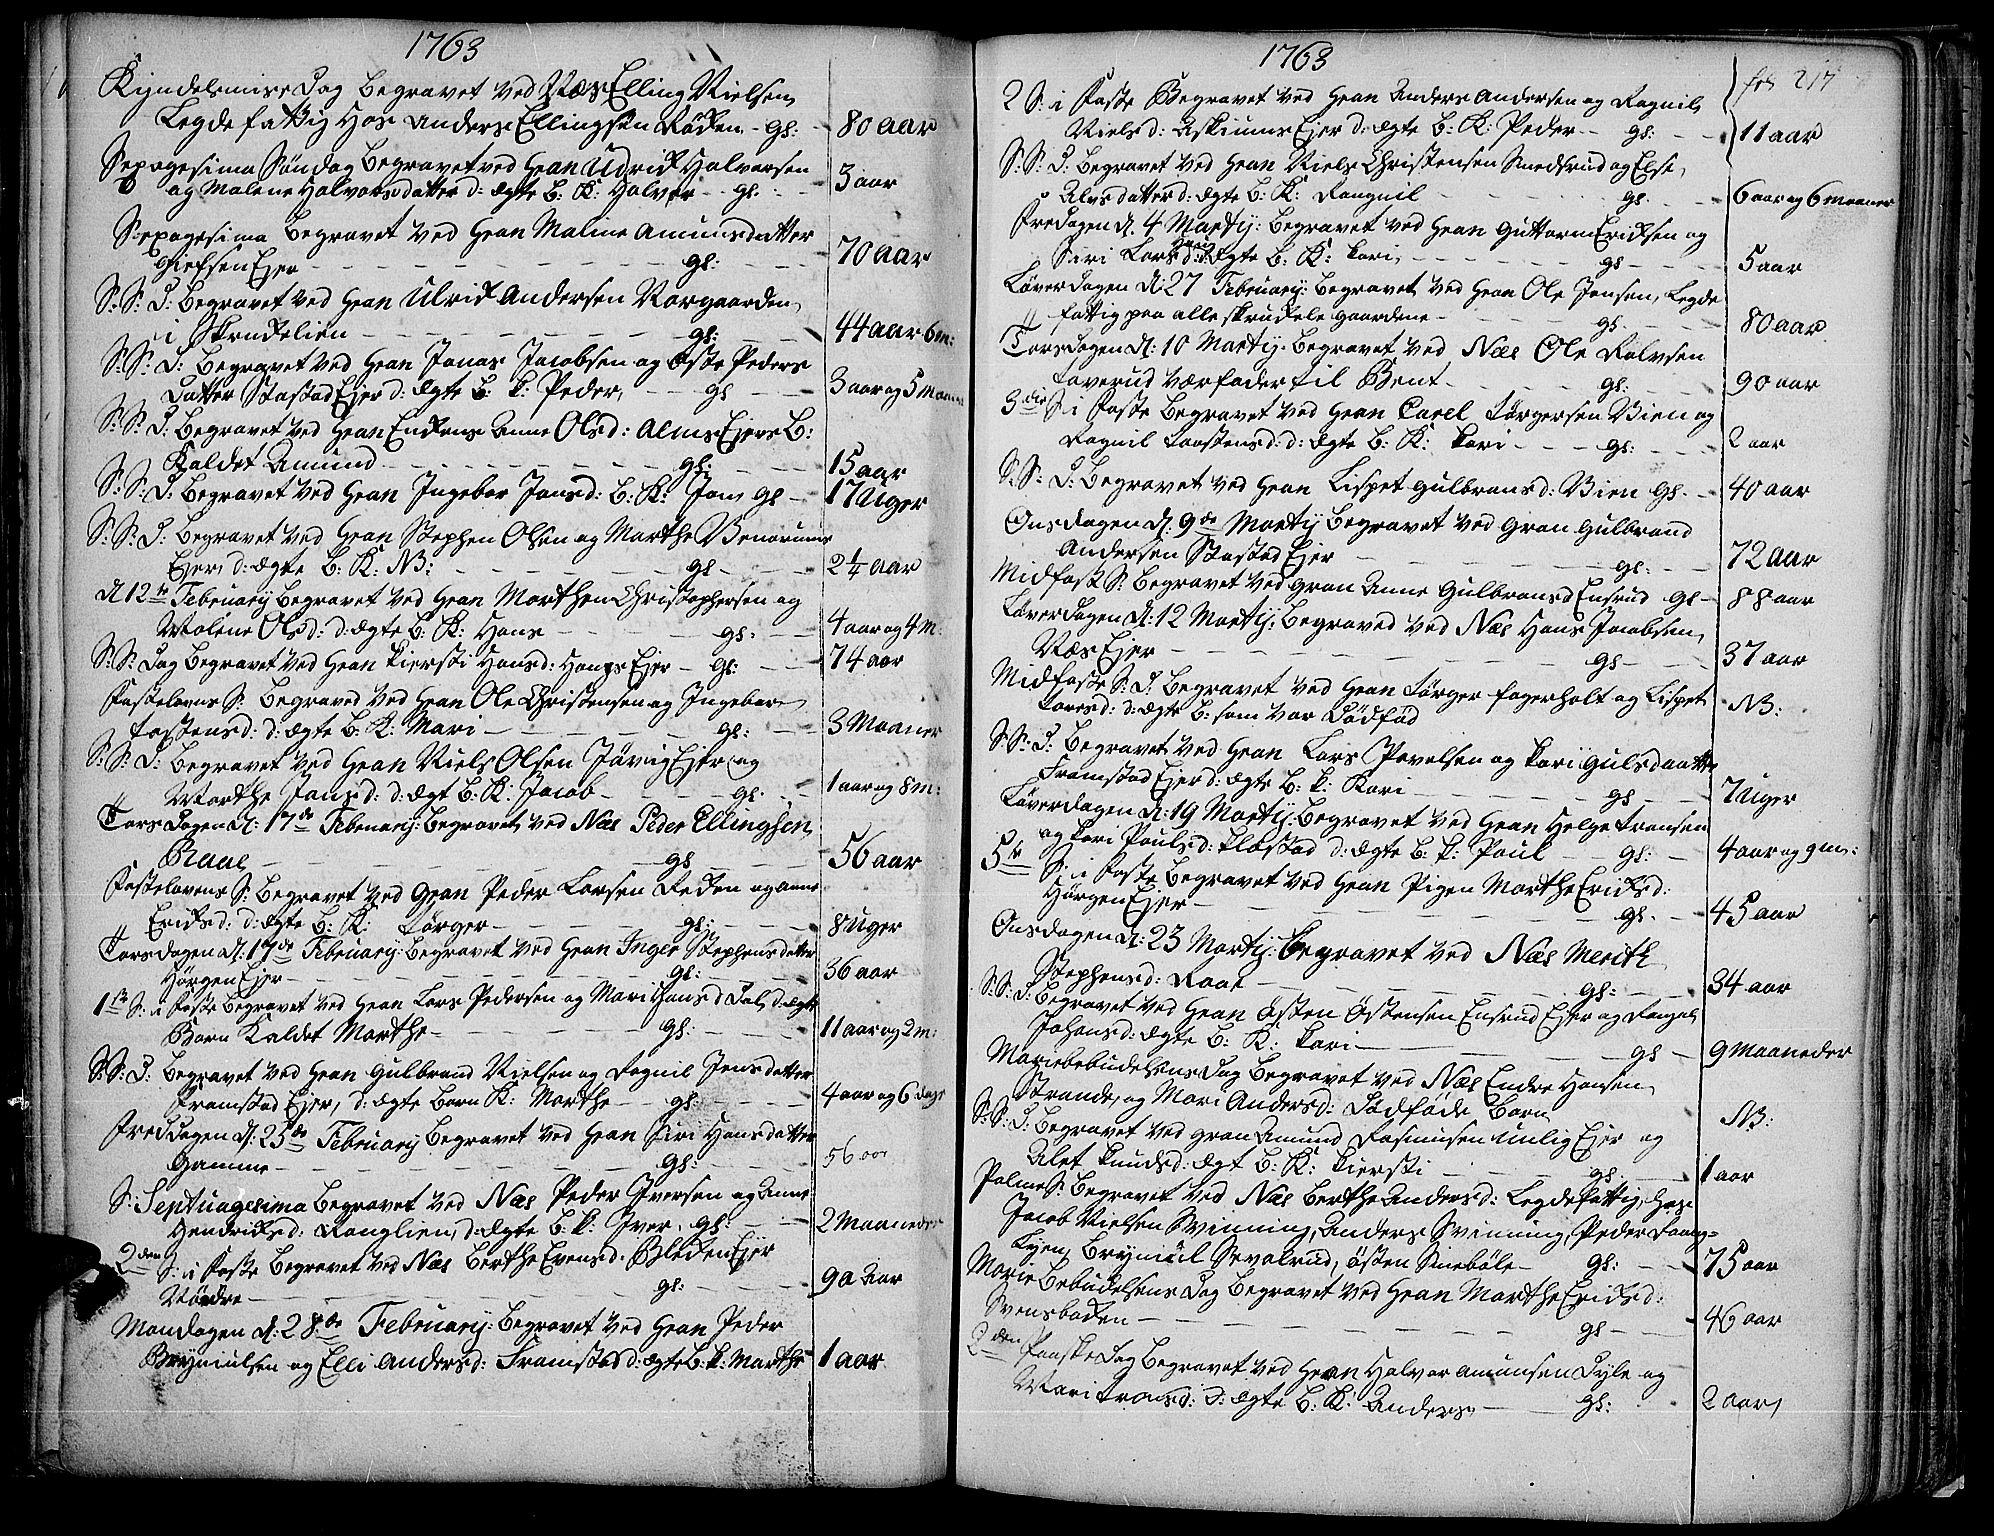 1763
Kyndelsmisse Dag Begravet ved Næs Elling Nielsen
Legdefattig Hos Anders Ellingsen Røden - gl: - 80 aar
Sexagesima Søndag Begravet ved Gran Udrik Halvorsen
og Malene Halvorsdatter d: ægte B: K: Halvor - gl: - 3 aar
Sexagesima Begravet ved Gran Maline Amunsdatter
Ejer - gl: - 70 aar
S: S: D: Begravet ved Gran Ulrik Andersen Norgaarden
i Skrukelien - gl: - 44 aar 6 m:
S: S: D: Begravet ved Gran Jonas Jacobsen og Åste Peders
Datter Stastad Ejer d: ægte B: K: Peder, - gl - 3 aar og 5 Maaned
S: S: D: Begravet ved Gran Enkens Anne Olsd: Alms Ejers B:
Kaldet Amund - gl: - 15 aar
S: S: D: Begravet ved Gran Ingebor Jonsd: B: K: Jon gl - 17 Uger
S: S: D: Begravet ved Gran Stephen Olsen og Marthe
Ejer d: ægte B: K: NB: - gl - 2 1/4 aar
d 12te February Begravet ved Gran Morthen Christophersen og
Malene Olsd: d: ægte B: K: Hans - gl: - 4 aar og 4 M:
S: S: Dag Begravet ved Gran Kiersti Hansd: Ejer - gl: - 74 aar
Fastelavns S: Begraved ved Gran Ole Christensen og Ingebor
Tostensd: d: ægte B: K: Mari - gl: - 3 Maaner
S: S: D: Begravet ved Gran Niels Olsen Jøvig Ejer og
Marthe Jonsd: d: ægt B: K: Jacob - gl: - 1 aar og 8 m:
Torsdagen d: 17de February: Begravet ved Næs Peder Ellingsen
Raae - gl - 56 aar
Fastelavens S: Begravet ved Gran Peder Larsen Røden og Anne
Eriksd: d: ægte B: K: Tørger - gl: - 8 Uger
Torsdagen d: 17de February: Begravet ved Gran Inger Stephensdatter
Hørgen Ejer - gl: - 36 aar
1ste S: i Faste Begravet ved Gran Lars Pedersen og Mari Hansd Dal d: ægte
Barn Kaldet Marthe - gl: - 11 aar og 2 m:
S: S: D: Begravet ved Gran Gulbrand Nielsen og Ragnil Jensdatter
Framstad Ejer, d: ægte Barn K: Marthe - gl: - 4 aar og 6 dage
Freddagen d: 25de February Begravet ved Gran Siri Hansdatter
Gamme - gl: - 56 aar
S: Septuagesima Begravet ved Næs Peder Iversen og Anne
Hendriksd: Ranglien, d: ægte B: K: Iver, gl: - 2 Maaneder
2den S: i Faste Begravet ved Næs Berthe Evensd: Bleken Ejer
Nordre - gl: - 90 Aar
Mandagen d: 28de February: Begravet ved Gran Peder
Brynjulsen og Elli Andersd: Framstad d: ægte B: K: Marthe 1 aar
1763
fol 217
2 S: i Faste Begravet ved Gran Anders Andersen og Ragnil
Nielsd: Askiums Ejer d: ægte B: K: Peder - gl: - 11 aar
S: S: D: Begravet ved Gran Niels Christensen Smedsrud og Else
Alvsdatter d: ægte B: K: Rangnil - gl: - 6 aar og 6 maaner
Fredagen d. 4 Martij: Begravet ved Gran Guttorm Eriksen og
Siri Larsd: d: ægte B: K: Kari, - gl - 5 aar
Løverdagen d: 27 February: Begravet ved Gran Ole Jensen, Legde
fattig paa alle Skrukele gaardene - gl - 80 aar
Torsdagen d: 10 Martij: Begravet ved Næs Ole Rolvsen
Taverud Værfader til Bent - gl: - 90 aar
3die S: i Faste Begravet ved Gran Carel Tørgersen Vien og
Ragnil Taastensd: d: ægte B: K: Kari - gl: - 2 aar
S: S: D: Begravet ved Gran Lispet Gulbransd: Vien gl. - 40 aar
Onsdagen d: 9de Martij Begravet ved Gran Gulbrand
Andersen Stastad Ejer - gl: - 72 aar
Midfast S: Begravet ved Gran Anne Gulbransd Ensrud gl - 88 aar
Løverdagen d: 12 Martij: Begraved ved Næs Hans Jacobsen
Næs Ejer - gl - 37 aar
Midfaste S: D: Begravet ved Gran Tørger Fagerholt og Lispet
Larsd: d: ægte B: som var Dødfød - NB:
S: S: D: Begravet ved Gran Lars Povelsen og Kari Gulsdaatter
Framstad Ejer d: ægte B: K: Kari - gl - 7 Uger
Løverdagen d: 19 Martij: Begravet ved Gran Helge Transen
og Kari Paulsd: Klæstad d: ægte B: K: Paul - gl: - 4 aar og 9 m:
5te S: i Faste Begravet ved Gran Pigen Marthe Eriksd:
Hørgen Ejer - gl. - 45 aar
Onsdagen d: 23 Martij: Begravet ved Næs Merith
Stephensd: Raae - gl: - 34 aar
S: S: D: Begravet ved Gran Østen Østensen Ensrud Ejer og Rangel
Johansd: ægte B: K: Kari - gl - 9 Maaneder
Mariebebudelsens Dag Begravet ved Næs Endre Hansen
Strande, og Mari Andersd: Dødføde Barn - NB:
S: S: D: Begravet ved Gran Amund Rasmusen Unlig Ejer og
Alet Knudsd: ægt B: K: Kiersti - gl - 1 aar
Palme S: Begravet ved Næs Berthe Andersd: Legdefattig, Hos
Jacob Nielsen Svinning, Anders Svinning, Peder Raang-
Lyen, Brynuil Sevalrud, Østen Sinebøle - gl: - 75 aar
Marie Bebudelsens Dag Begravet ved Gran Marthe Eriksd:
Svensbaken - gl - 46 aar
2den Paaske Dag Begravet ved Gran Halvor Amunsen Dyle og
Mari Transd: d: ægte B: K: Anders - gl: - 2 aar